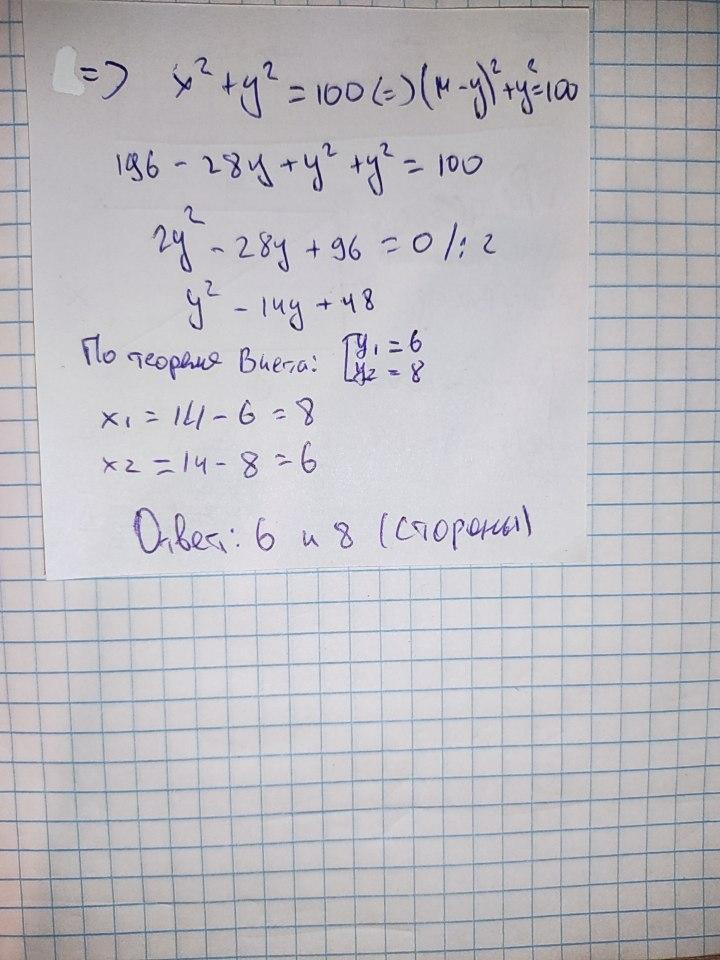 => x² + y² = 100 (=) (14-y)² + y² = 100
196 - 28y + y² + y² = 100
2y² - 28y + 96 = 0 /: 2
y² - 14y + 48
По теореме Виета: [y₁ = 6
y₂ = 8
x₁ = 14 - 6 = 8
x2 = 14 - 8 = 6
Ответ: 6 и 8 (стороны)